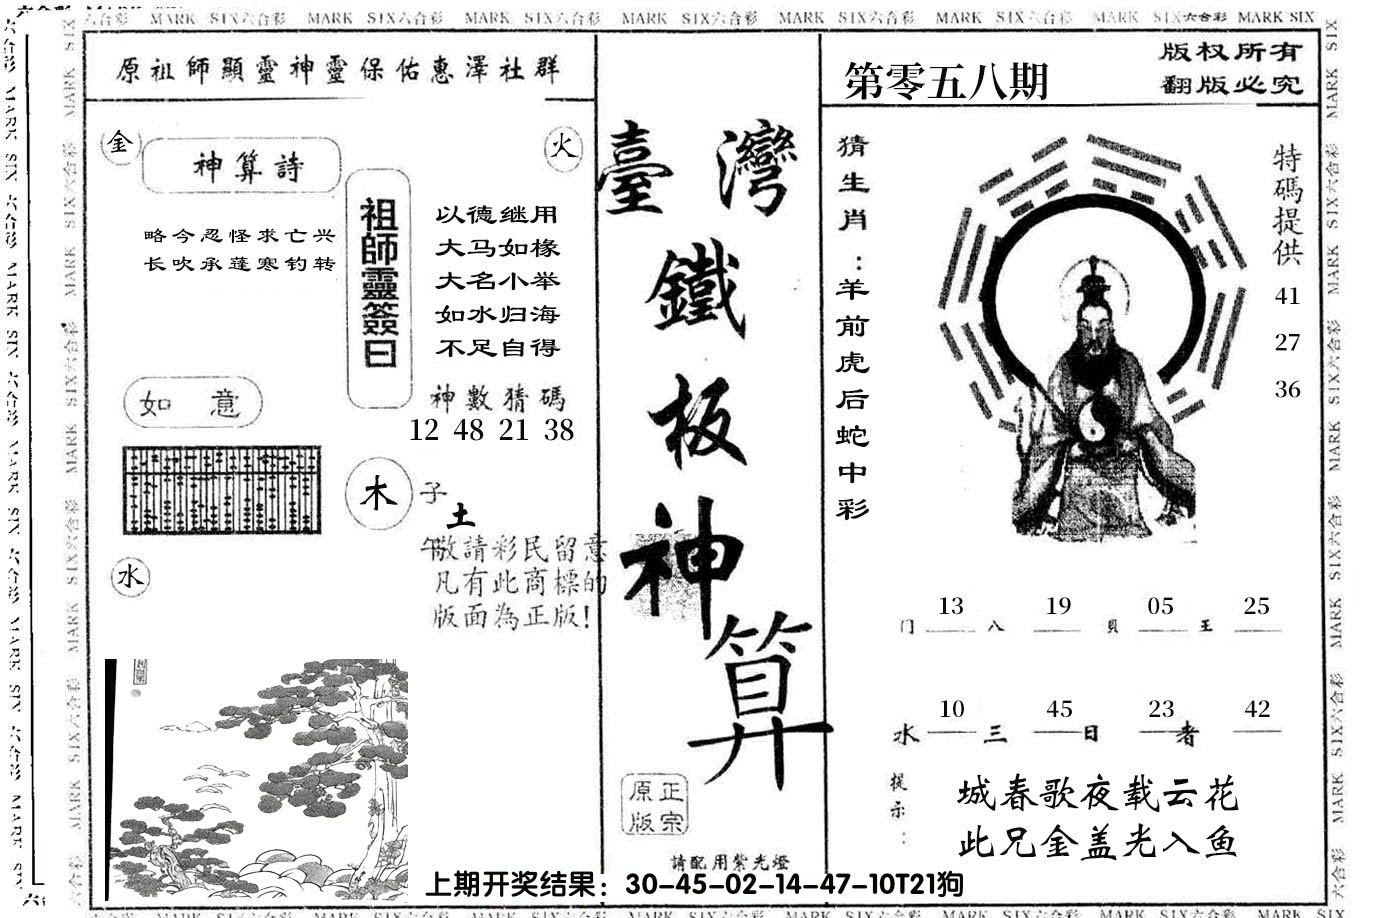 MARK SIX六合彩 MARK SIX六合彩 MARK SIX六合彩 MARK SIX六合彩 MARK SIX六合彩 MARK SIX六合彩 MARK SIX六合彩 MARK SIX
原祖師顯靈神靈保佑惠澤社群
金
火
神算詩
略今忍怪求亡兴
长吹承蓬寒钓转
祖師靈簽曰
以德继用
大马如椽
大名小举
如水归海
不足自得
如意
神數猜碼
12 48 21 38
木
子
土
午
水
敬請彩民留意
凡有此商標的
版面為正版!
臺灣
鐵
板
神
算
正宗
原版
請配用紫光燈
第零五八期
版权所有
翻版必究
猜生肖：羊前虎后蛇中彩
特碼提供
41
27
36
13 19 05 25
门 八 貝 王
10 45 23 42
水 三 日 者
提示：
城春歌夜载云花
此兄金盖光入鱼
上期开奖结果：30-45-02-14-47-10T21狗